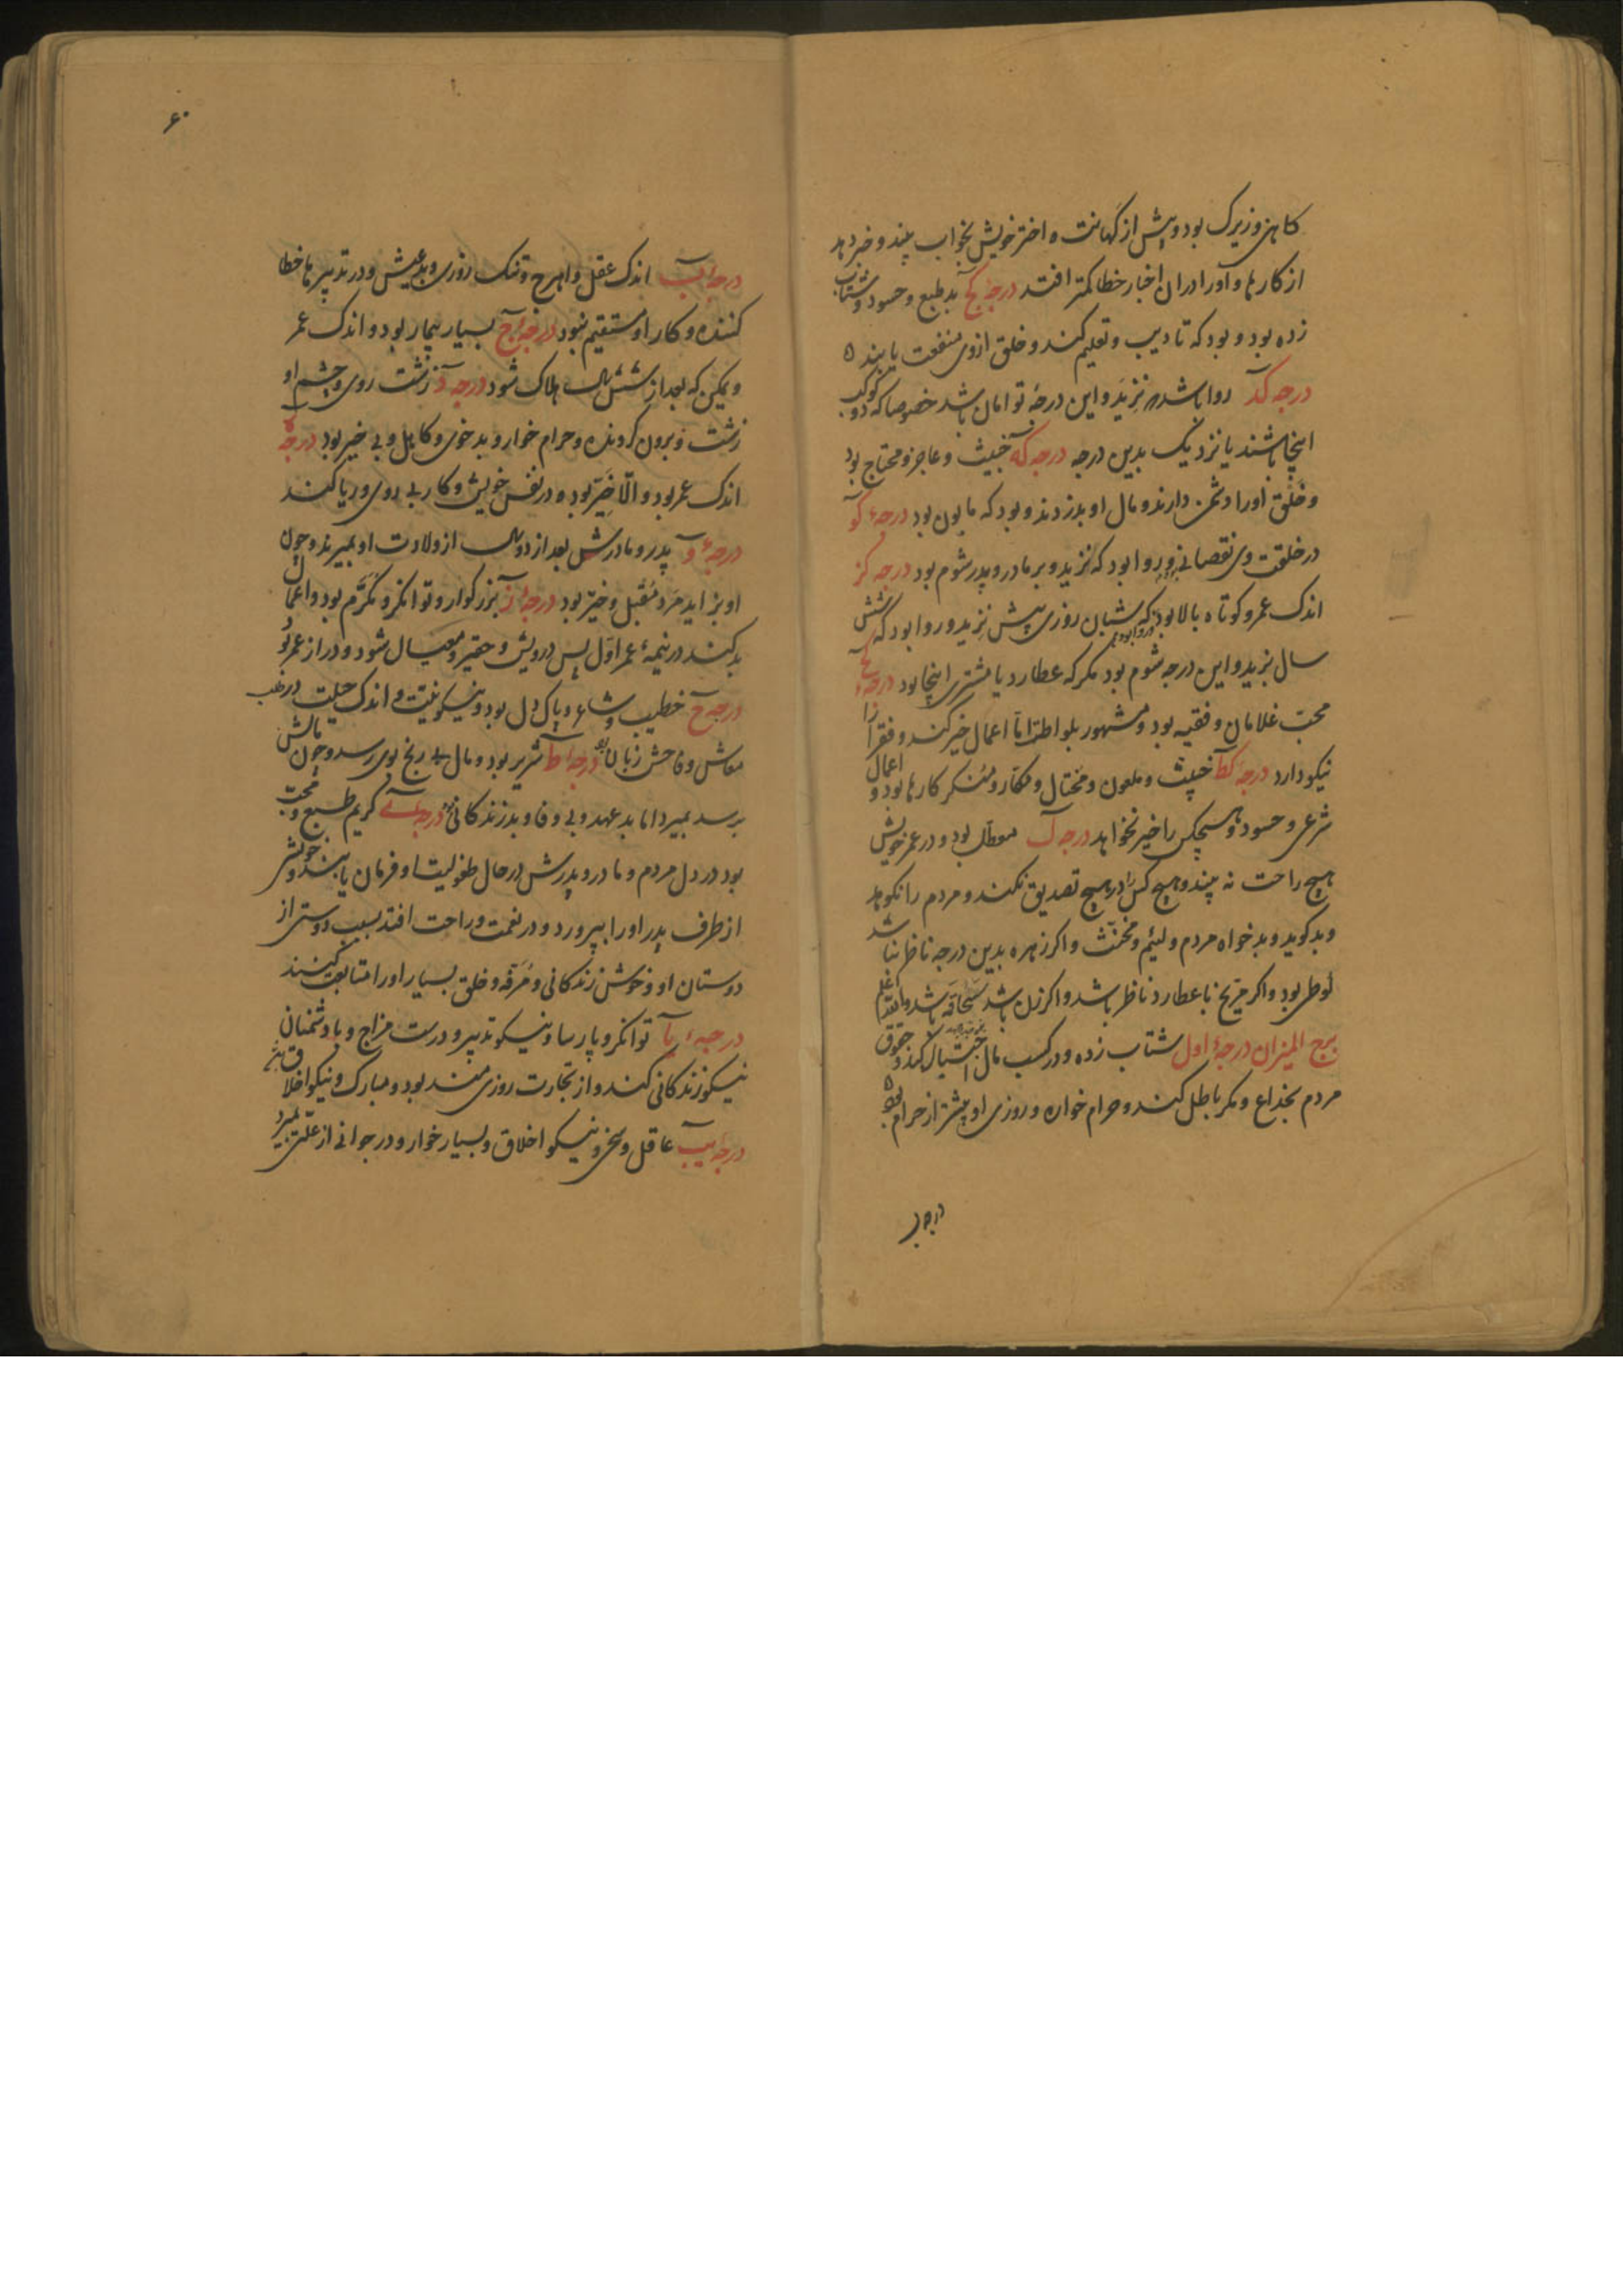 کاهن و زیرک بود و پیش از کهانت و اختر خویش بخواب بیند و خبر دهد
از کارها و او را دران اخبار خطا کمتر افتد درجه کج بد طبع و حسود و شتاب
زده بود و بود که تادیب و تعلیم کند و خلق ازوی منفعت یابند ه
درجه کد روا باشد که نزید و این درجهٔ توامان باشد خصوصا که دو کوکب
اینجا باشند یا نزدیک بدین درجه درجه که خبیث و عاجز و محتاج بود
و خلق او را دشمن دارند و مال او بدزدند و بود که مابون بود درجهٔ کو
در خلقت وی نقصانی بود روا بود که نزید و بر مادر و پدر شوم بود درجه کز
اندک عمر و کوتاه بالا بود و روا بود که شبان روزی بیش نزید و روا بود که شش
سال بزید و این درجه شوم بود مکر که عطارد یا مشتری اینجا بود درجهٔ کح
محب غلامان و فقیه بود و مشهور بلواطة اما اعمال خیر کند و فقرا را
نیکو دارد درجه کط خبیث و ملعون و محتال و مکار و منکر کارها بود و اعمال
شرعی و حسود و هیچکس را خیر نخواهد درجه ل معطل بود و در عمر خویش
هیچ راحت نه بیند و هیچ کس را در هیچ تصدیق نکند و مردم را نکوهد
و بد کوید و بد خواه مردم و لئیم و مخنث و اکر زهره بدین درجه ناظر باشد
لوطی بود و اکر مریخ با عطارد ناظر باشد و اکر زن باشد سحاقه باشد و الله اعلم
برج المیزان درجهٔ اول شتاب زده و در کسب مال احتیال کند و حقوق
مردم بخداع و مکر باطل کند و حرام خواره و روزی او بیشتر از حرام بود
درجه ب
۶۰
درجه ب اندک عقل و اهرج و تنک روزی و بد عیش و در تدبیرها خطا
کننده و کار او مستقیم نبود درجه ج بسیار بیمار بود و اندک عمر
و یمکن که بعد از شش سال هلاک شود درجه د زشت روی و چشم او
زشت و برون کرونده و حرام خوار و بد خوی و کاهل و بی خیر بود درجه ه
اندک عمر بود و الا خیّر بود در نفس خویش و کار بی روی و ریا کند
درجهٔ و پدر و مادرش بعد از دو سال از ولادت او بمیرند و چون
او بزاید مرد مقبل و خیّر بود درجه ز بزرکوار و توانکر و مکرّم بود و اعمال
بد کند در نیمهٔ عمر اول پس درویش و حقیر و معیال شود و دراز عمر بود
درجه ح خطیب و شاعر و پاک دل بود و نیکو نیت و اندک حیلت در طلب
معاش و فاحش زبان بود درجه ط شریر بود و مال بی رنج بوی رسد و چون مالش
برسد بمیرد اما بد عهد و بی وفا و بد زندکانی بود درجه ی کریم طبع و محب
بود در دل مردم و مادر و پدرش در حال طفولیت او فرمان یابند و خویشی
از طرف پدر او را بپرورد و در نعمت و راحت افتد بسبب دوستی از
دوستان او و خوش زندکانی و مرفه و خلق بسیار او را متابعت کنند
درجهٔ یا توانکر و پارسا و نیکو تدبیر و درست مزاج و با دشمنان
نیکو زندکانی کند و از تجارت روزی مند بود و مبارک و نیکو اخلاق
درجه یب عاقل و سخی و نیکو اخلاق و بسیار خوار و در جوانی از علتی بمیرد